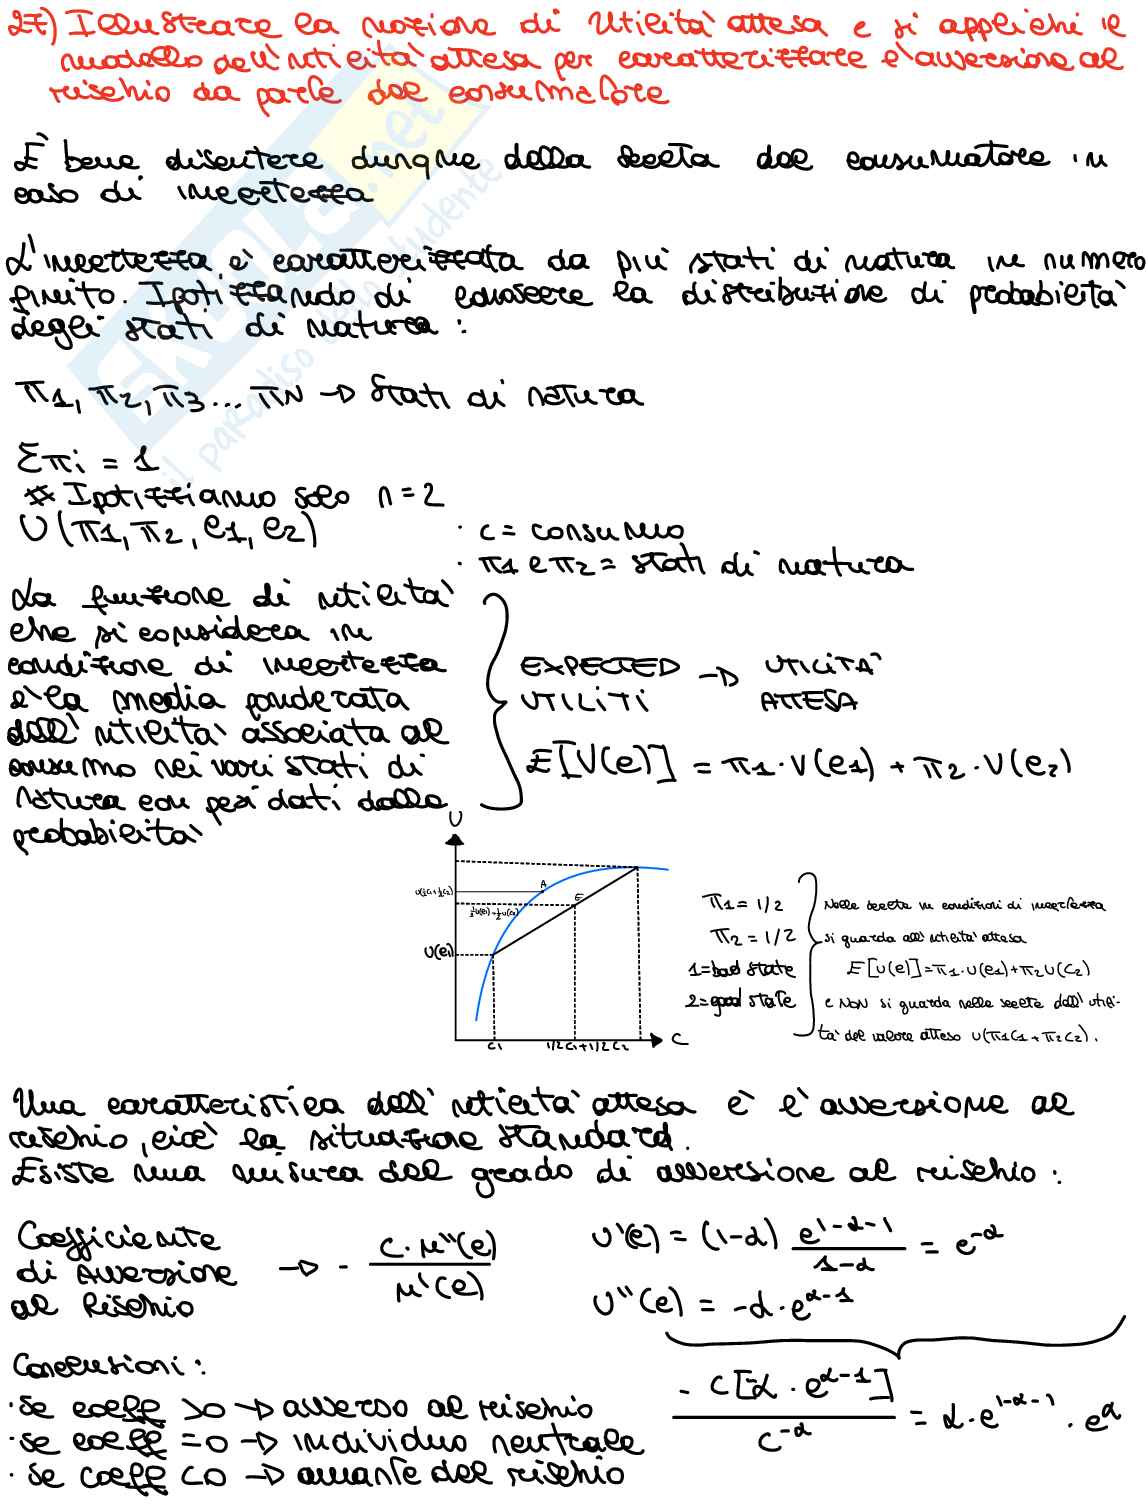 27) Illustrare la nozione di Utilità attesa e si applichi il
modello dell'utilità attesa per caratterizzare l'avversione al
rischio da parte del consumatore
È bene discutere dunque della scelta del consumatore in
caso di incertezza
L'incertezza è caratterizzata da più stati di natura in numero
finito. Ipotizzando di conoscere la distribuzione di probabilità
degli stati di natura:
π1, π2, π3... πN → Stati di natura
Σπi = 1
* Ipotizziamo solo n=2
U(π1, π2, c1, c2)
· c = consumo
· π1 e π2 = stati di natura
La funzione di utilità
che si considera in
condizione di incertezza
è la media ponderata
dell'utilità associata al
consumo nei vari stati di
natura con pesi dati dalla
probabilità
EXPECTED → UTILITÀ
UTILITI ATTESA
E[V(c)] = π1·V(c1) + π2·V(c2)
U
U(½C1+½C2)
A
½U(C1)+½U(C2)
E
U(C1)
C1
1/2C1+1/2C2
C
π1 = 1/2
π2 = 1/2
1=bad state
2=good state
Nelle scelte in condizioni di incertezza
si guarda all'utilità attesa
E[U(c)]=π1·U(c1)+π2U(C2)
e NON si guarda nelle scelte dell'utili-
tà del valore atteso U(π1C1+π2C2).
Una caratteristica dell'utilità attesa è l'avversione al
rischio, cioè la situazione standard.
Esiste una misura del grado di avversione al rischio:
Coefficiente
di avversione
al Rischio
→ - C·μ''(c) / μ'(c)
U'(c) = (1-α) c^1-α-1 / 1-α = c^-α
U''(c) = -α·c^α-1
- C[-α·c^α-1] / C^-α = α·c^1-α-1 · c^α
Conclusioni:
·Se coeff >0 → avverso al rischio
·se coeff =0 → individuo neutrale
·se coeff <0 → amante del rischio
SKUOLA.net
il paradiso dello studente